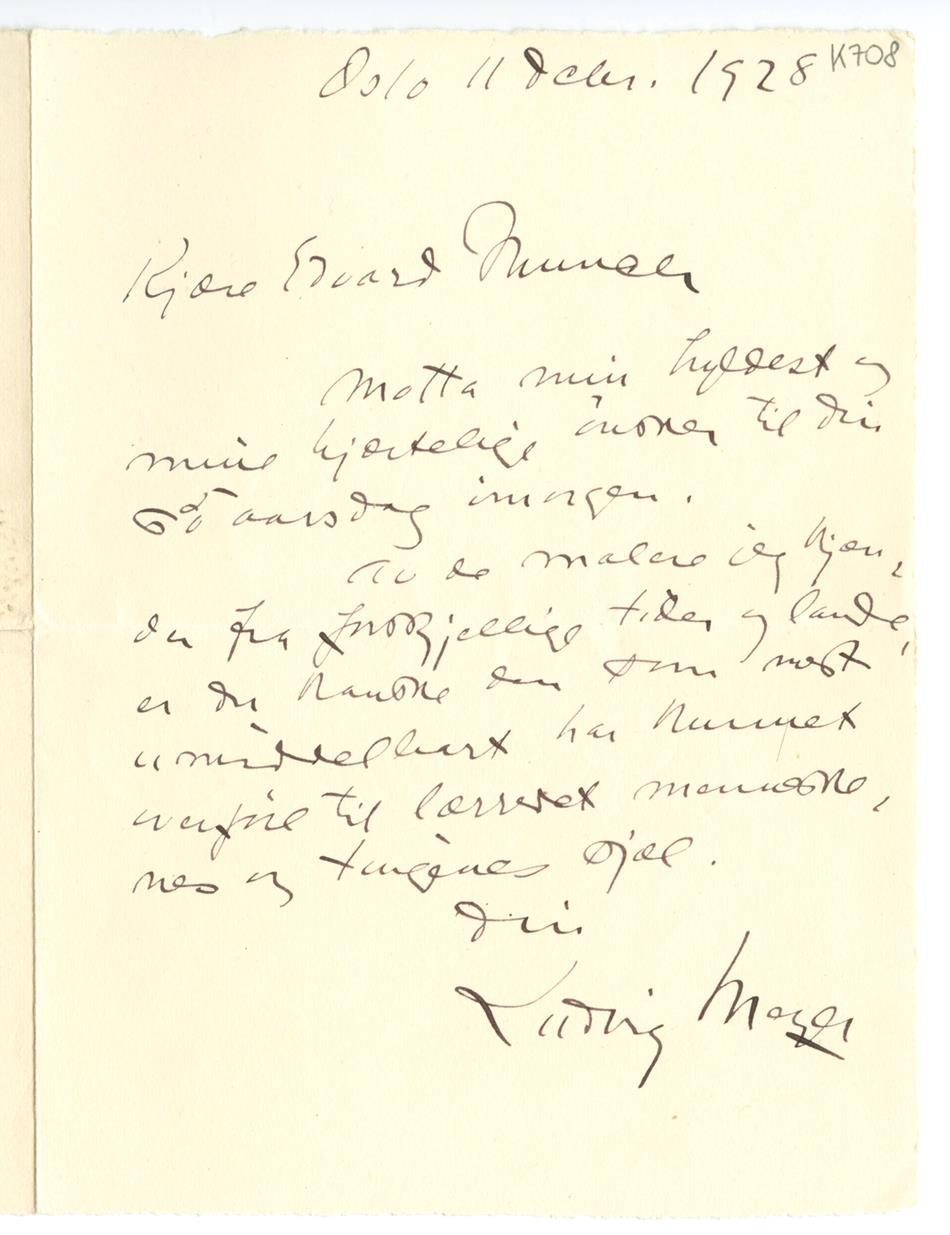 Oslo 11 Debr. 1928 K708
Kjære Edvard Munch
Motta min hyldest og
mine hjærtelige ønsker til din
65 aarsdag imorgen.
Av de malere jeg kjæn-
der fra forskjellige tider og lande,
er du kanske den som mest
umiddelbart har kunnet
overføre til lærredet menneske-
nes og tingenes sjæl.
Din
Ludvig Meyer